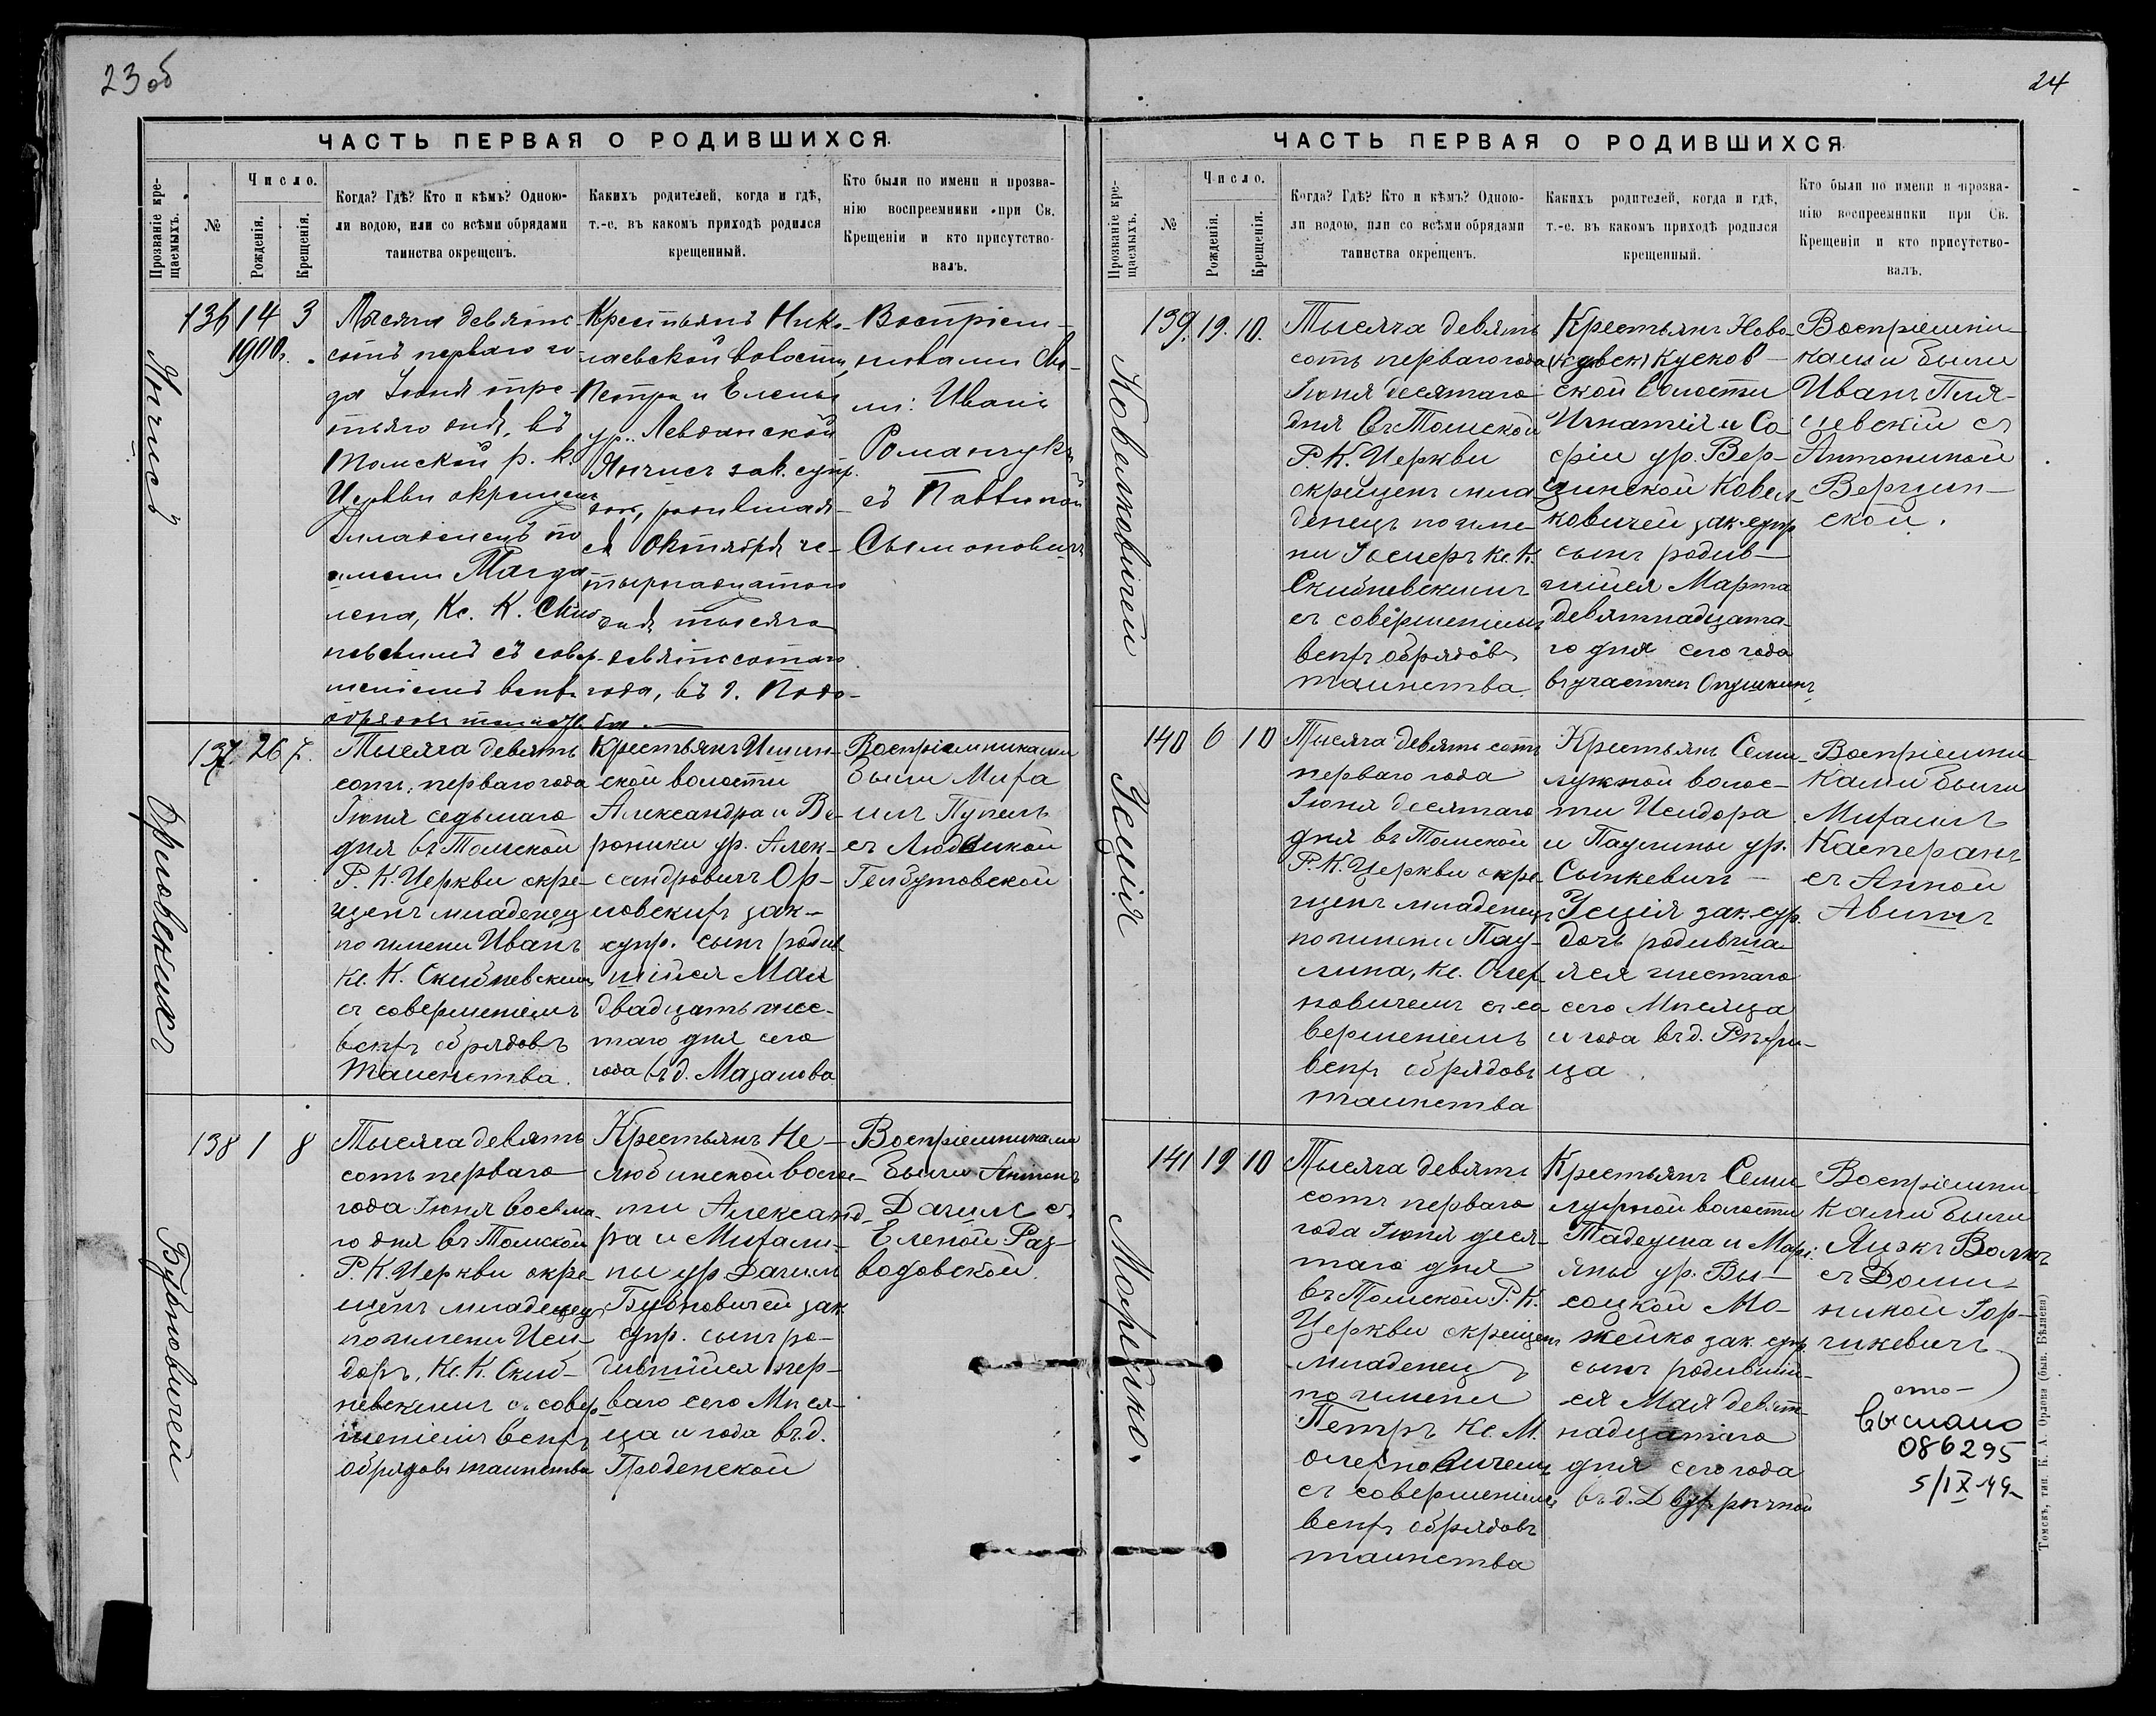 23 об
ЧАСТЬ ПЕРВАЯ О РОДИВШИХСЯ.
Прозваніе кре-
щаемыхъ.
№
Число.
Рожденія.
Крещенія.
Когда? Гдѣ? Кто и кѣмъ? Одною-
ли водою, или со всѣми обрядами
таинства окрещенъ.
Какихъ родителей, когда и гдѣ,
т.-е. въ какомъ приходѣ родился
крещенный.
Кто были по имени и прозва-
нію воспреемники при Св.
Крещеніи и кто присутство-
валъ.
Янчисъ
136 14 3
1900 г.
Тысяча девять-
сотъ перваго го
да Іюня тре-
тьяго дня, въ
Томской р. к.
Церкви окрещенъ
младенецъ по
имени Магда-
лена, Кс. К. Скиб
невскимъ съ совер-
шеніемъ всѣхъ
обрядовъ таинства.
Крестьянъ Нико-
лаевской волости
Петра и Елены
ур. Левданской
Янчисъ зак. супр.
дочь, родившая-
ся Октября че-
тырнадцатого
дня тысяча
девятисотаго
года, въ д.
Воспріем-
никами бы-
ли: Иванъ
Романчукъ
съ Павлиной
Сымоновичъ
Орловскихъ
137. 26 7.
Тысяча девять
сотъ перваго года
Іюня седьмаго
дня въ Томской
Р. К. Церкви окре-
щенъ младенец
по имени Иванъ
Кс. К. Скибневским
съ совершеніемъ
всѣхъ обрядовъ
Таинства.
Крестьянъ Ишим-
ской волости
Александра и Ве-
роники ур. Алек-
сандровичъ Ор-
ловскихъ зак-
супр. сынъ родив
шійся Мая
двадцать шес-
таго дня сего
года въ д. Мазалова
Воспріемниками
были Миха
илъ Пупель
съ Людвикой
Гелбутовской
Бубновичей
138 1 8
Тысяча девять
сотъ перваго
года Іюня восьма-
го дня въ Томской
Р. К. Церкви окре
щенъ младенец
по имени Иси-
доръ, Кс. К. Скиб-
невскимъ съ совер
шеніемъ всѣхъ
обрядовъ таинства
Крестьянъ Не-
любинской волос-
ти Александ-
ра и Михали-
ны ур Дагилъ
Бубновичей зак
супр. сынъ ро-
дившійся пер-
ваго сего Мѣся-
ца и года въ д.
Гроденской
Воспріемниками
были Антонъ
Дагилъ съ
Еленой Раз-
водовской.
24
ЧАСТЬ ПЕРВАЯ О РОДИВШИХСЯ
Прозваніе кре-
щаемыхъ.
№
Число.
Рожденія.
Крещенія.
Когда? Гдѣ? Кто и кѣмъ? Одною-
ли водою, или со всѣми обрядами
таинства окрещенъ.
Какихъ родителей, когда и гдѣ,
т.-е. въ какомъ приходѣ родился
крещенный.
Кто были по имени и прозва-
нію воспреемники при Св.
Крещеніи и кто присутство-
валъ.
Ковалковичей
139. 19. 10.
Тысяча девять
сотъ перваго года
Іюня десятаго
дня въ Томской
Р. К. Церкви
окрещенъ мла
денецъ по име
ни Іосифъ Кс. К.
Скибневскимъ
съ совершеніемъ
всѣхъ обрядовъ
таинства.
Крестьянъ Ново
Кусков-
ской волости
Игнатія и Со
фіи ур. Вер-
цинской Ковал
ковичей зак. супр
сынъ родив-
шійся Марта
девятнадцата-
го дня сего года
въ участкѣ
Воспріемни
ками были
Иванъ
съ
Антониной
Верцин-
ской.
Усція
140 6 10
Тысяча девять сотъ
перваго года
Іюня десятаго
дня въ Томской
Р. К. Церкви окре
щенъ младенецъ
по имени Пау-
лина, Кс. Олех
новичемъ съ со
вершеніемъ
всѣхъ обрядовъ
таинства
Крестьян Семи
лужной волос-
ти Исидора
и Паулины ур.
Сынкевичъ-
Усція зак. супр.
дочь родивша
яся шестаго
сего Мѣсяца
и года въ д.
ца.
Воспріемни
ками были
Михаилъ
Касперанъ
съ Анной
Авинъ
Можейко.
141 19 10
Тысяча девять
сотъ перваго
года Іюня деся-
таго дня
въ Томской Р. К.
Церкви окрещен
младенецъ
по имени
Петръ Кс. М.
Олехновичемъ
съ совершеніемъ
всѣхъ обрядовъ
таинства
Крестьянъ Семи
лужной волости
Тадеуша и Марі-
яны ур. Вы-
соцкой Мо-
жейко зак. супр.
сынъ родивший-
ся Мая девят-
надцатаго
дня сего года
въ д. Двухрѣчной
Воспріемни
ками были
съ Доми-
никой Гор-
чикевичъ
выслано
086295
5/IX-49
Томскъ, тип. К. А. Орлова (быв. Бѣляева)